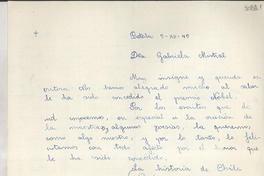 Batala 5-XII-45
Dra Gabriela Mistral
Muy insigne y querida es
critora: Nos hemos alegrado mucho al saber
le ha sido concedido el premio Nóbel.
Por los escritos que de
ud conocemos, en especial la oración de
la maestra y algunas poesías, la queremos
como algo nuestro, y por lo tanto, la feli
citamos con todo afecto por el honor que
le ha sido concedido.
La historia de Chile